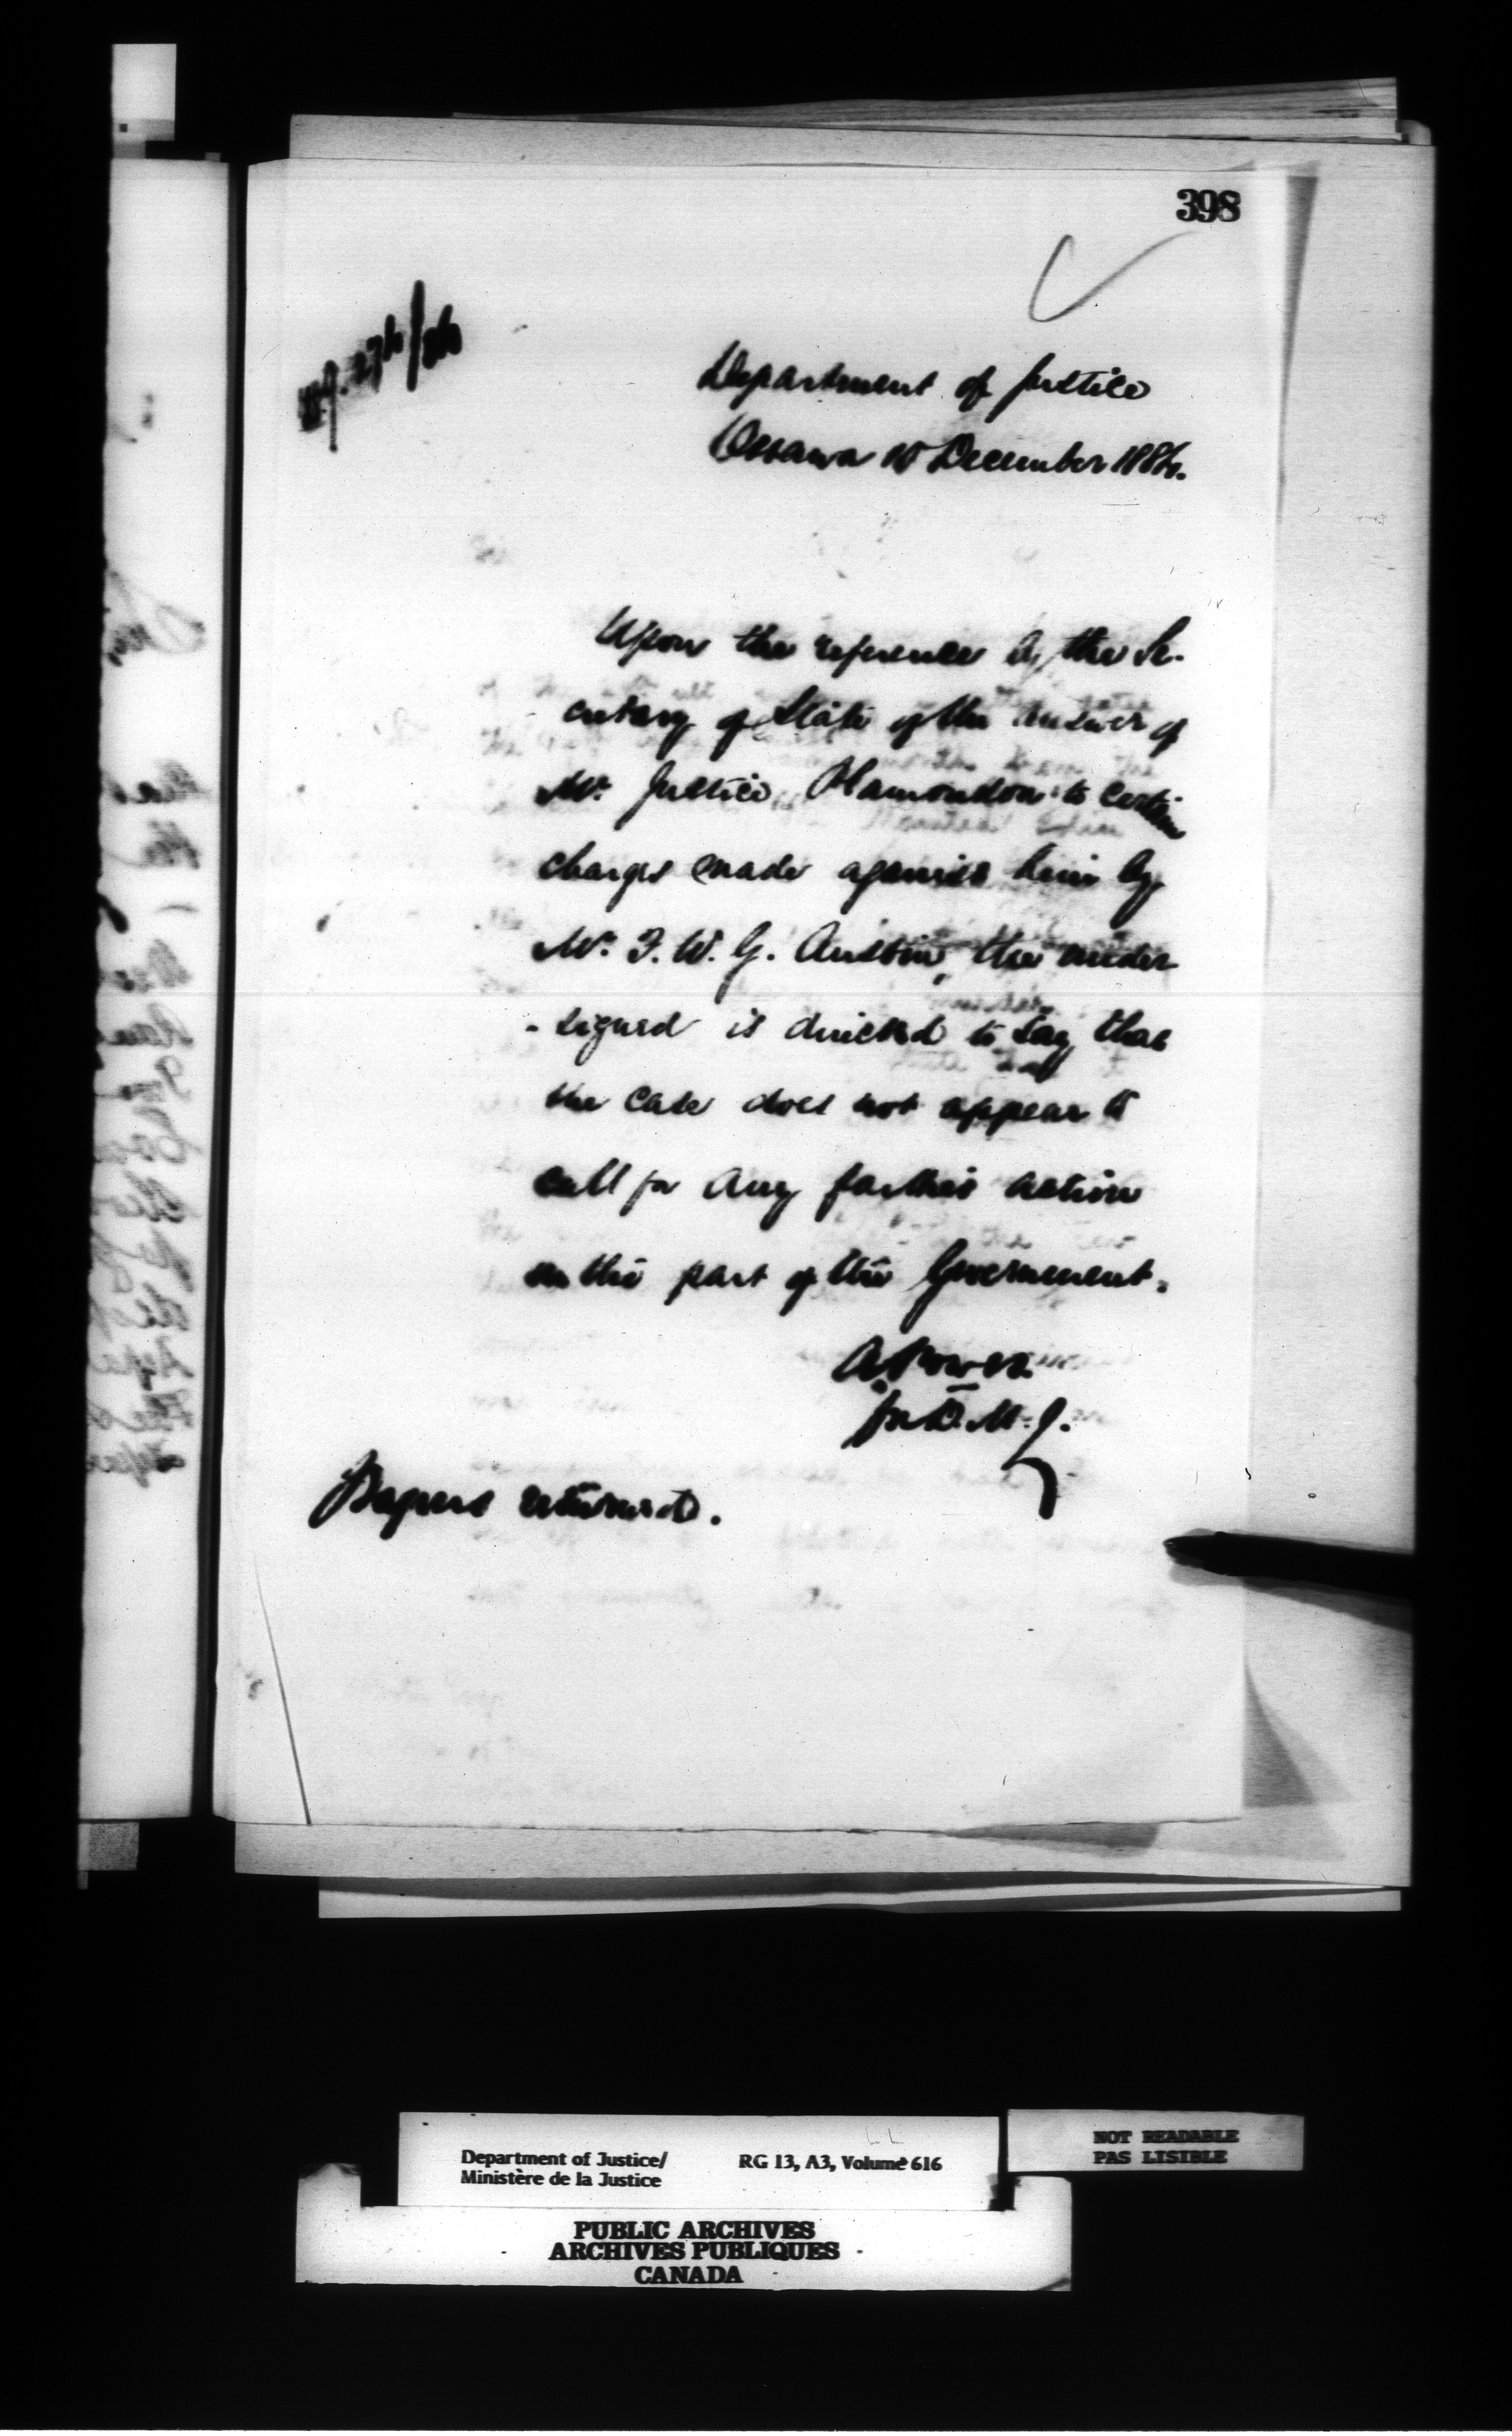 398
Department of Justice
Ottawa 10 December 1886.
Upon the reference by the Se-
cretary of State of the answer of
Mr. Justice Plamondon to certain
charges made against him by
Mr. F. W. G. Austin, the under
-signed is directed to say that
the case does not appear to
call for any further action
on the part of the Government.
A. Power.
for D. M. J.
Papers returned.
Department of Justice/ RG 13, A3, Volume 616
Ministère de la Justice
NOT READABLE
PAS LISIBLE
PUBLIC ARCHIVES
ARCHIVES PUBLIQUES
CANADA